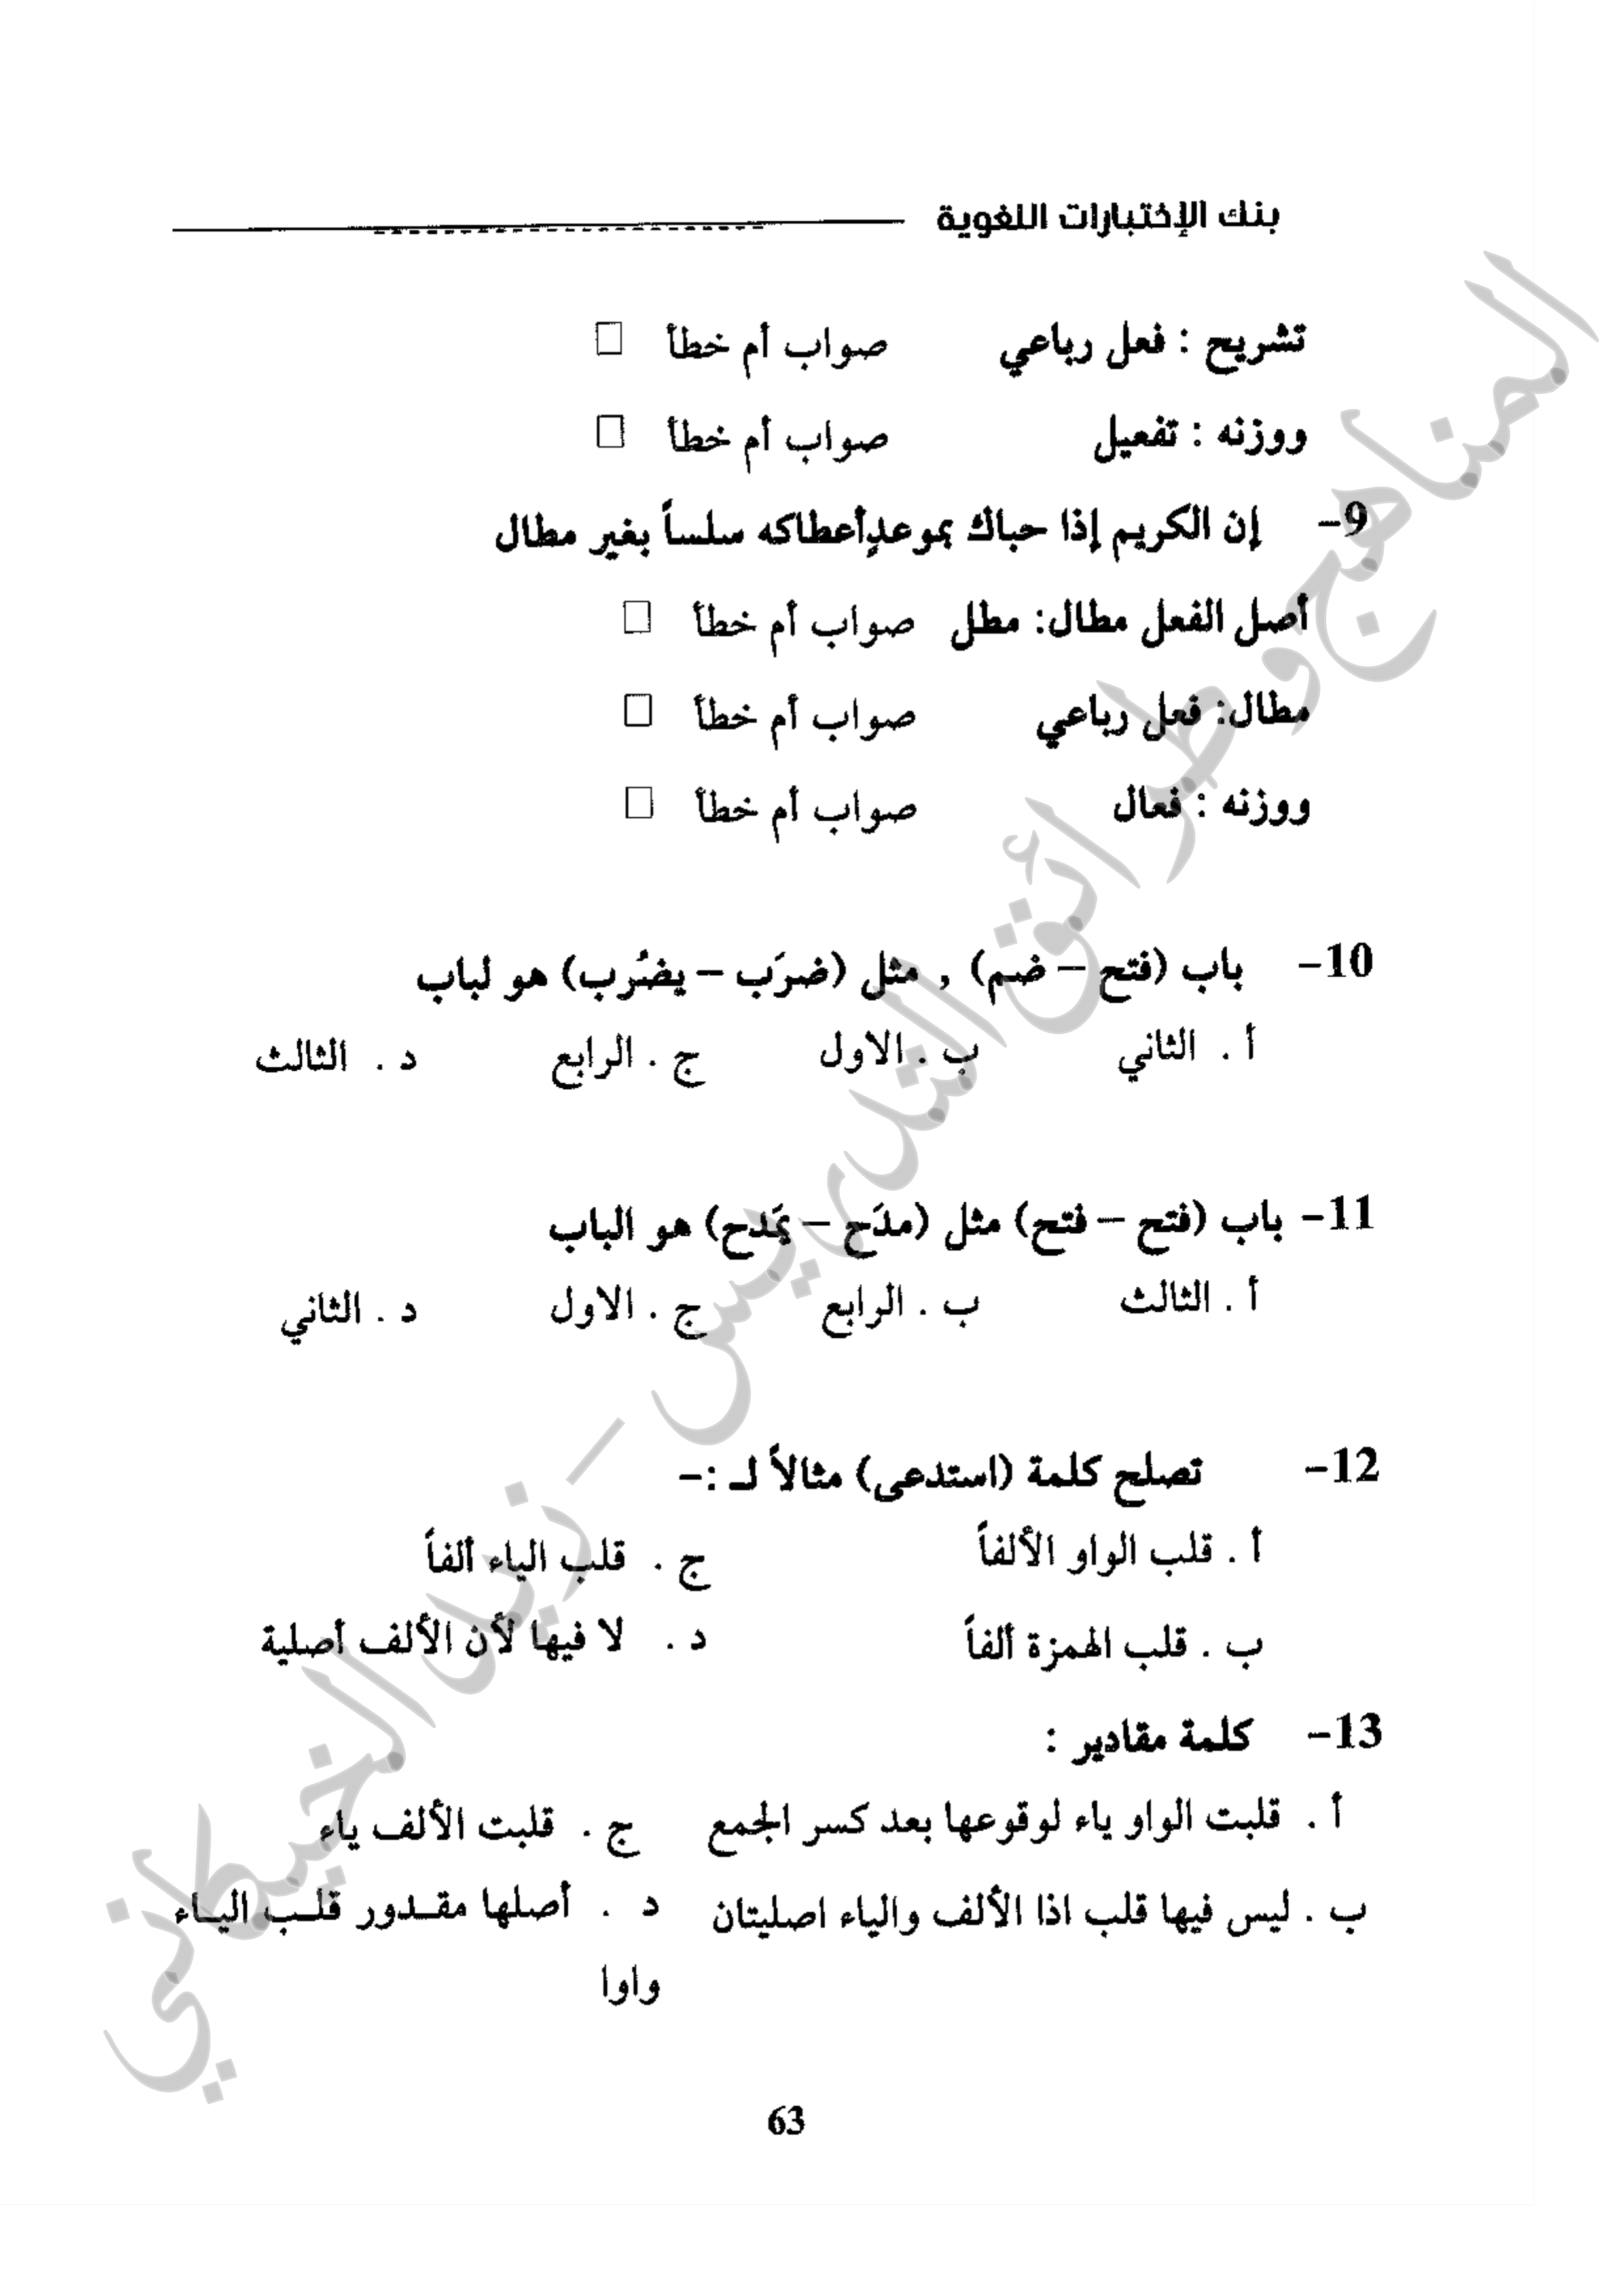 بنك الإختبارات اللغوية
تشريح : فعل رباعي صواب أم خطأ □
ووزنه : تفعيل صواب أم خطأ □
9- إن الكريم إذا حباك بموعدٍأعطاكه سلساً بغير مطال
أصل الفعل مطال: مطل صواب أم خطأ □
مطال: فعل رباعي صواب أم خطأ □
ووزنه : فعال صواب أم خطأ □
10- باب (فتح – ضم) , مثل (ضرَب – يضُرب) هو لباب
أ . الثاني ب . الاول ج . الرابع د . الثالث
11- باب (فتح – فتح) مثل (مدَح – يمَدح) هو الباب
أ . الثالث ب . الرابع ج . الاول د . الثاني
12- تصلح كلمة (استدعى) مثالاً لـ :-
أ . قلب الواو الألفاً ج . قلب الياء ألفاً
ب . قلب الهمزة ألفاً د . لا فيها لأن الألف أصلية
13- كلمة مقادير :
أ . قلبت الواو ياء لوقوعها بعد كسر الجمع ج . قلبت الألف ياء
ب . ليس فيها قلب اذا الألف والياء اصليتان د . أصلها مقـدور قلـب اليـاء
واوا
63
المناهج وطرائق التدريس – زيد الخيطاني